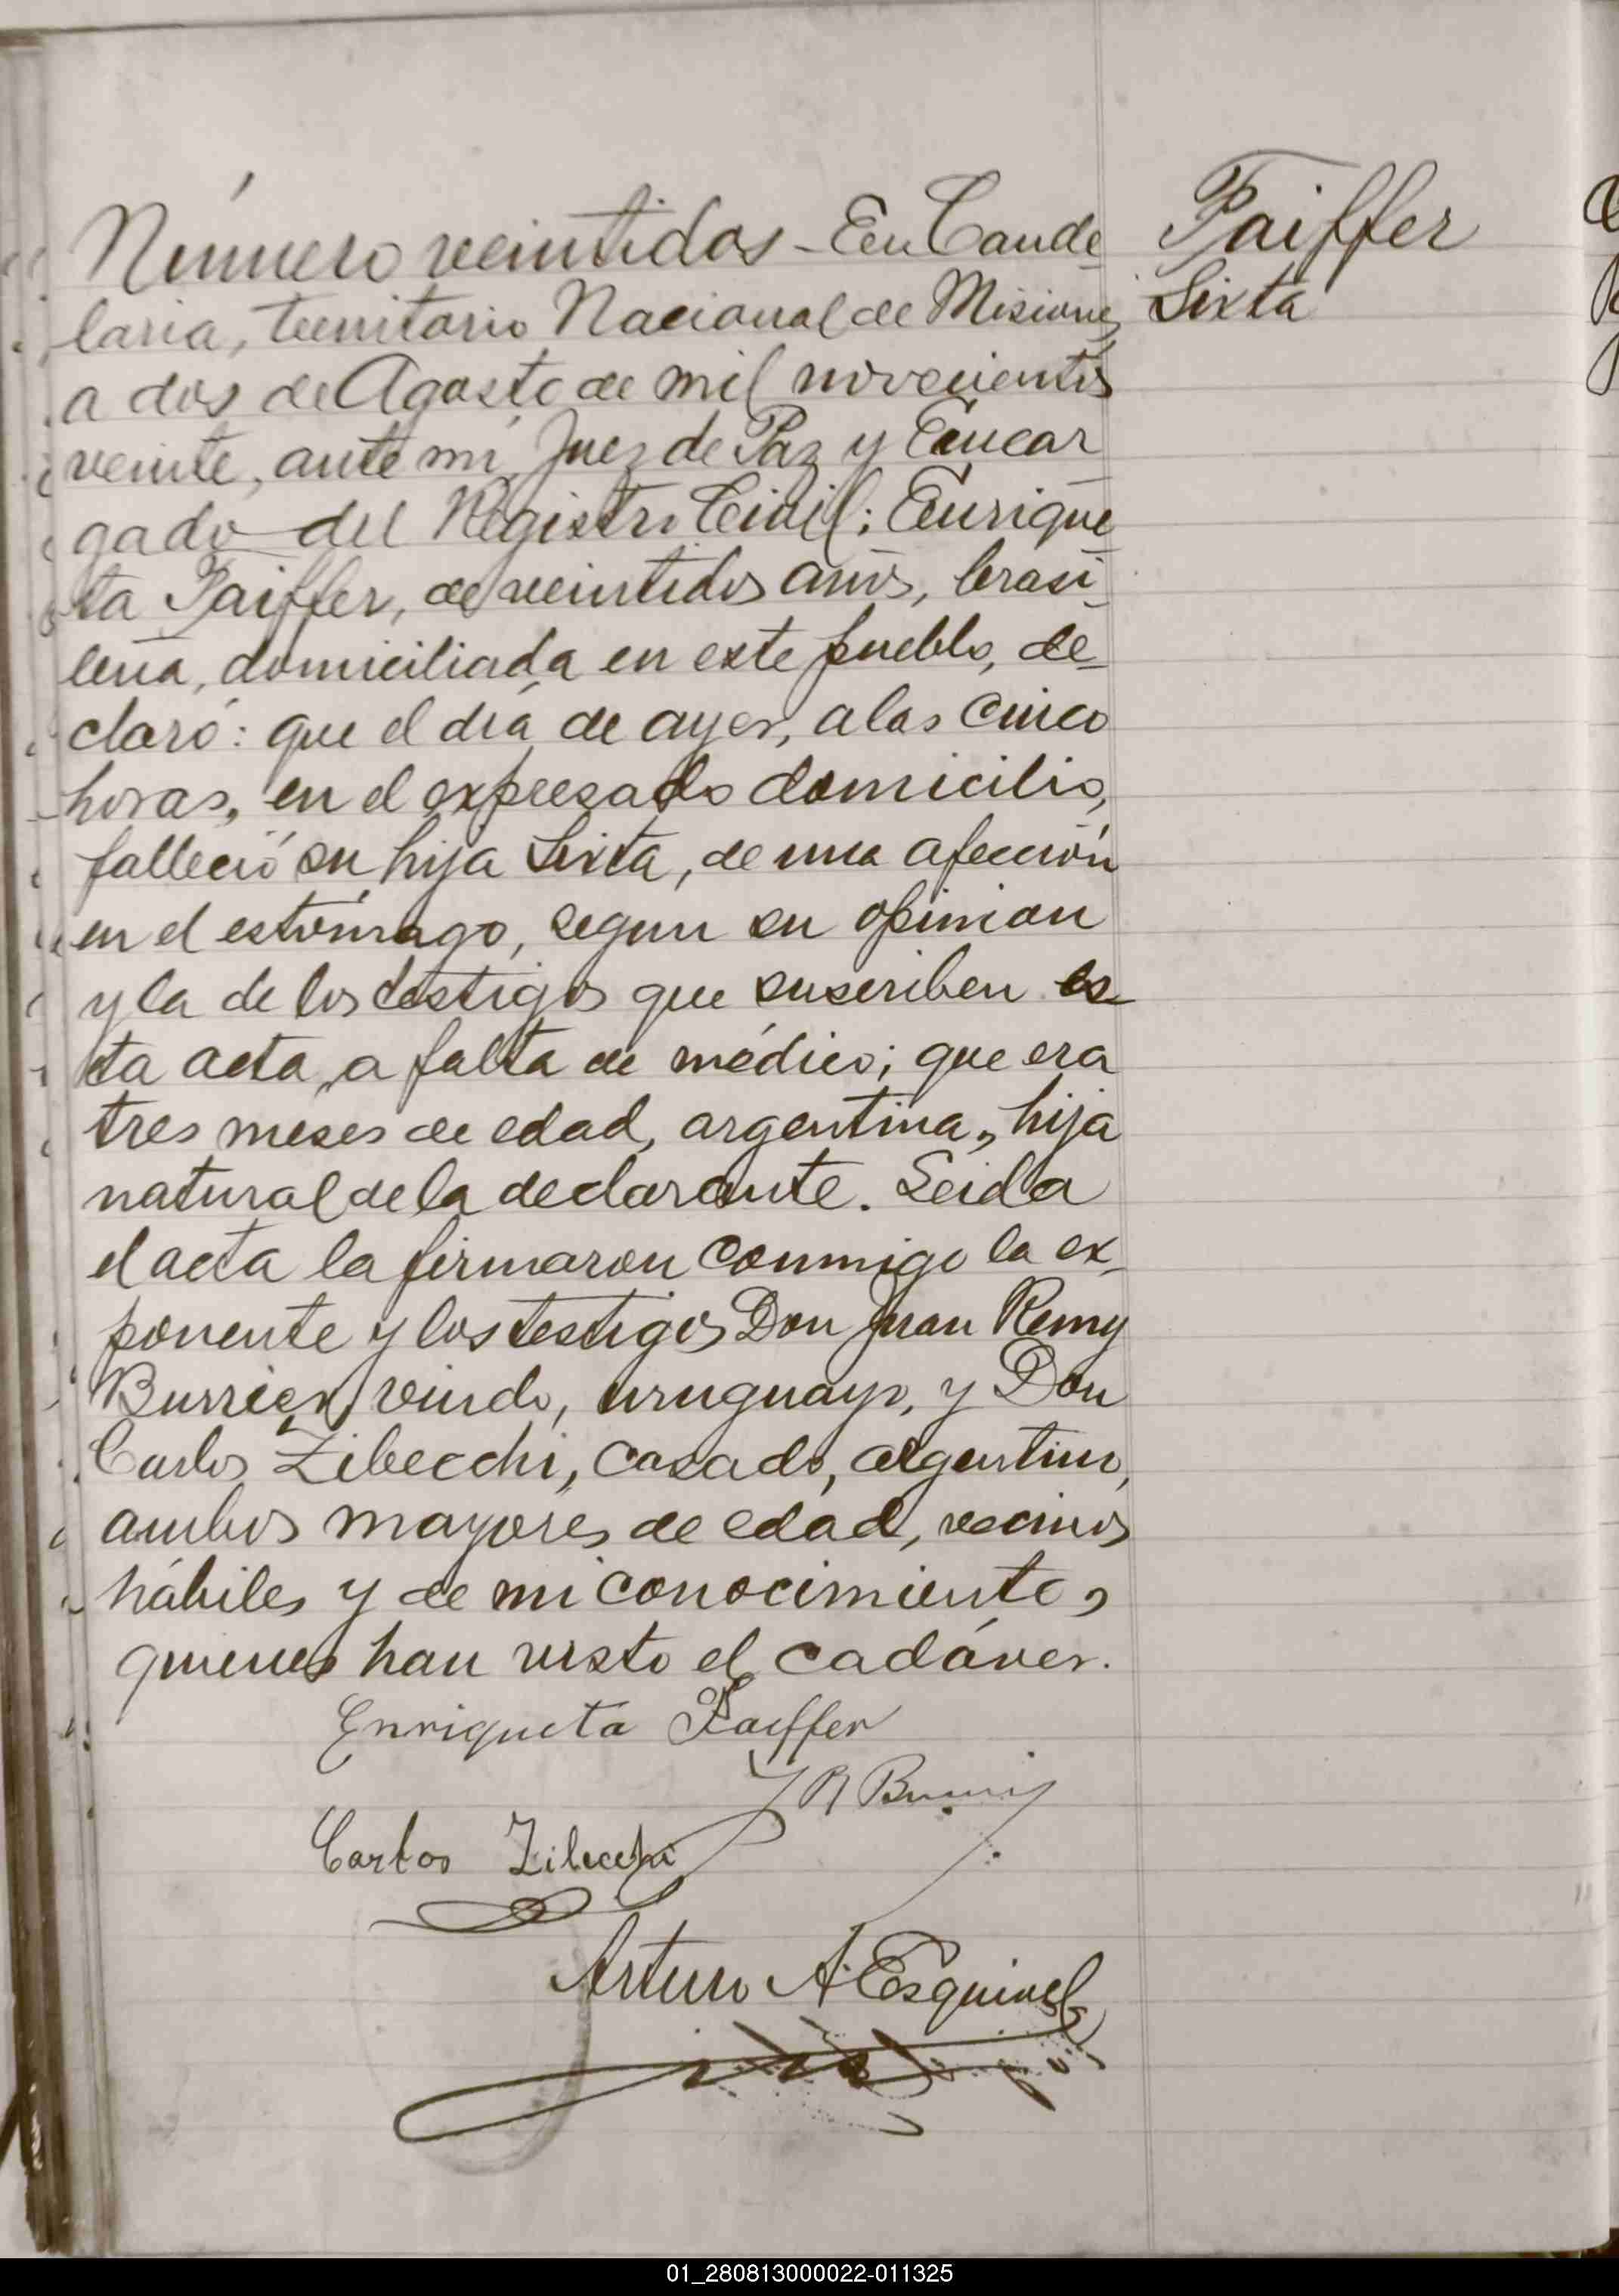 Número veintidos - En Cande-
laria, territorio Nacional de Misiones
a dos de Agosto de mil novecientos
veinte, ante mí, Juez de Paz y Encar-
gado del Registro Civil; Enrique-
ta Paiffer, de veintidos años, brasi-
leña, domiciliada en este pueblo, de-
claró: que el día de ayer, a las cinco
horas, en el expresado domicilio,
falleció su hija Sixta, de una afección
en el estómago, segun su opinion
y la de los testigos que suscriben es-
ta acta, a falta de médico; que era
tres meses de edad, argentina, hija
natural de la declarante. Leida
el acta la firmaron conmigo la ex-
ponente y los testigos Don Juan Remy
viudo, uruguayo, y Don
Carlos Zibecchi, casado, argentino,
ambos mayores de edad, vecinos
hábiles y de mi conocimiento,
quienes han visto el cadáver.
Enriqueta Paiffer
J R
Carlos Zibecchi
Arturo A. Esquivel
Paiffer
Sixta
01_280813000022-011325